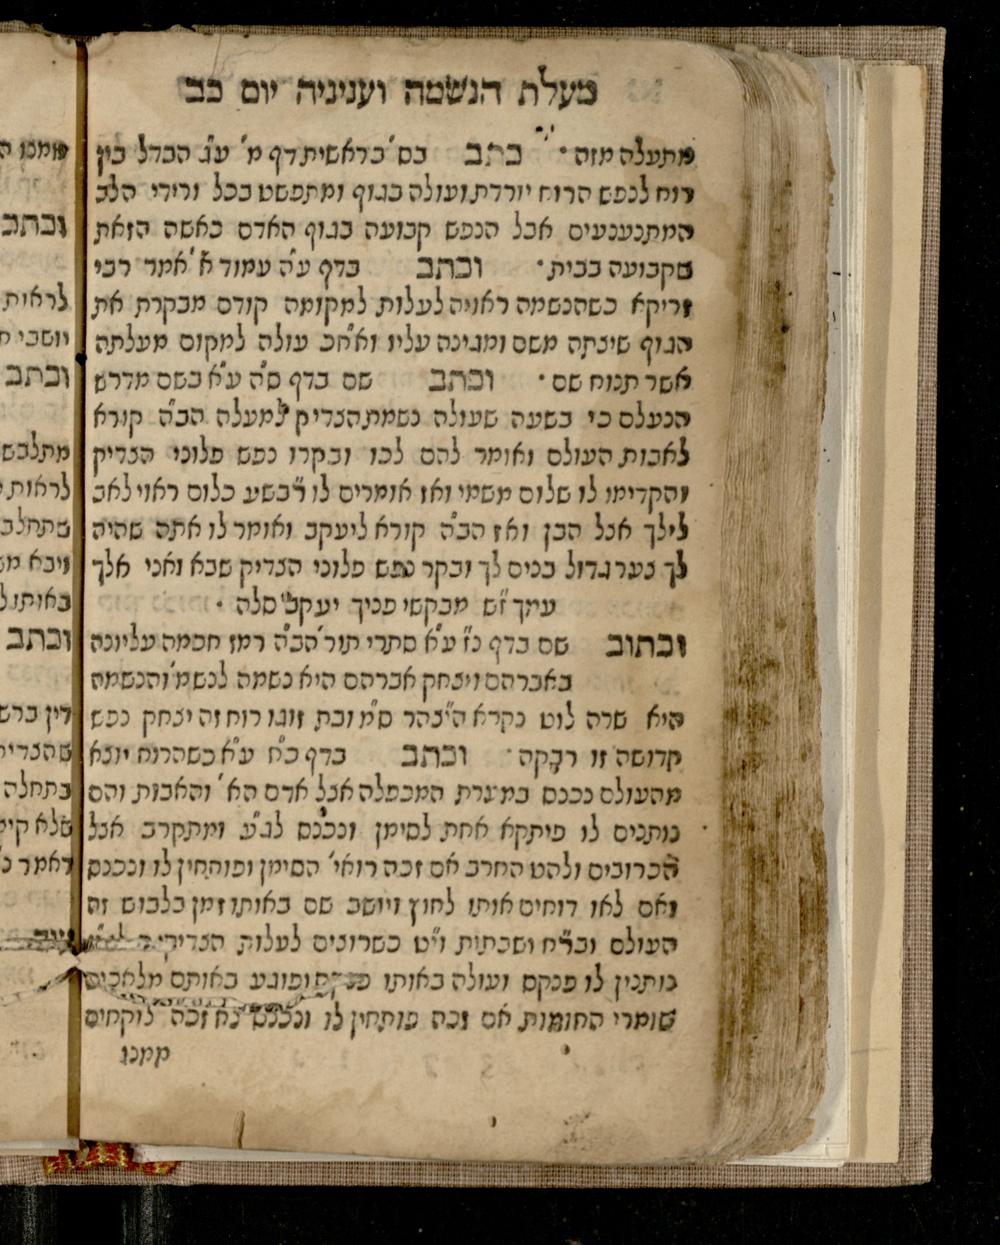 מעלת הנשמה ועניניה יום כב
מתעלה מזה · כתב בס' בראשית דף מ' ע"ג הבדל בין
רוח לנפש הרוח יורדת ועולה בגוף ומתפשט בכל ורידי הלב
המתנענעים אבל הנפש קבועה בגוף האדם כאשה הזאת
שקבועה בבית · וכתב בדף ע"ה עמוד א' אמר רבי
זריקא כשהנשמה ראויה לעלות למקומה קודם מבקרת את
הגוף שיצתה משם ומגינה עליו ואח"כ עולה למקום מעלתה
אשר תנוח שם · וכתב שם בדף ס"ה ע"א בשם מדרש
הנעלם כי בשעה שעולה נשמת הצדיק למעלה הב"ה קורא
לאבות העולם ואומר להם לכו ובקרו נפש פלוני הצדיק
והקדימו לו שלום משמי ואז אומרים לו רבש"ע כלום ראוי לאב
לילך אצל הבן ואז הב"ה קורא ליעקב ואומר לו אתה שהיה
לך צער גדול בנים לך ובקר נפש פלוני הצדיק שבא ואני אלך
עמך ז"ש מבקשי פניך יעקב סלה ·
וכתוב שם בדף נ"ז ע"א סתרי תור' הב"ה רמז חכמה עליונה
באברהם ויצחק אברהם היא נשמה לנשמ' והנשמה
היא שרה לוט נקרא היצהר ס"מ ובת זוגו רוח זה יצחק נפש
קדושה זו רבקה · וכתב בדף כ"ח ע"א כשהרוח יוצא
מהעולם נכנס במערת המכפלה אצל אדם הא' והאבות והם
נותנים לו פיתקא אחת לסימן ונכנס לג"ע ומתקרב אצל
הכרובים ולהט החרב אם זכה רואי' הסימן ופותחין לו ונכנס
ואם לאו דוחים אותו לחוץ ויושב שם באותו זמן בלבוש זה
העולם ובר"ח ושבתות וי"ט כשרוצים לעלות הצדיקים
נותנין לו פנקס ועולה באותו פנקס ופוגע באותם מלאכים
שומרי החומות אם זכה פותחין לו ונכנס לא זכה לוקחים
ממנו
וכתב
לראות
וכתב
לראות
וכתב
בתחלה